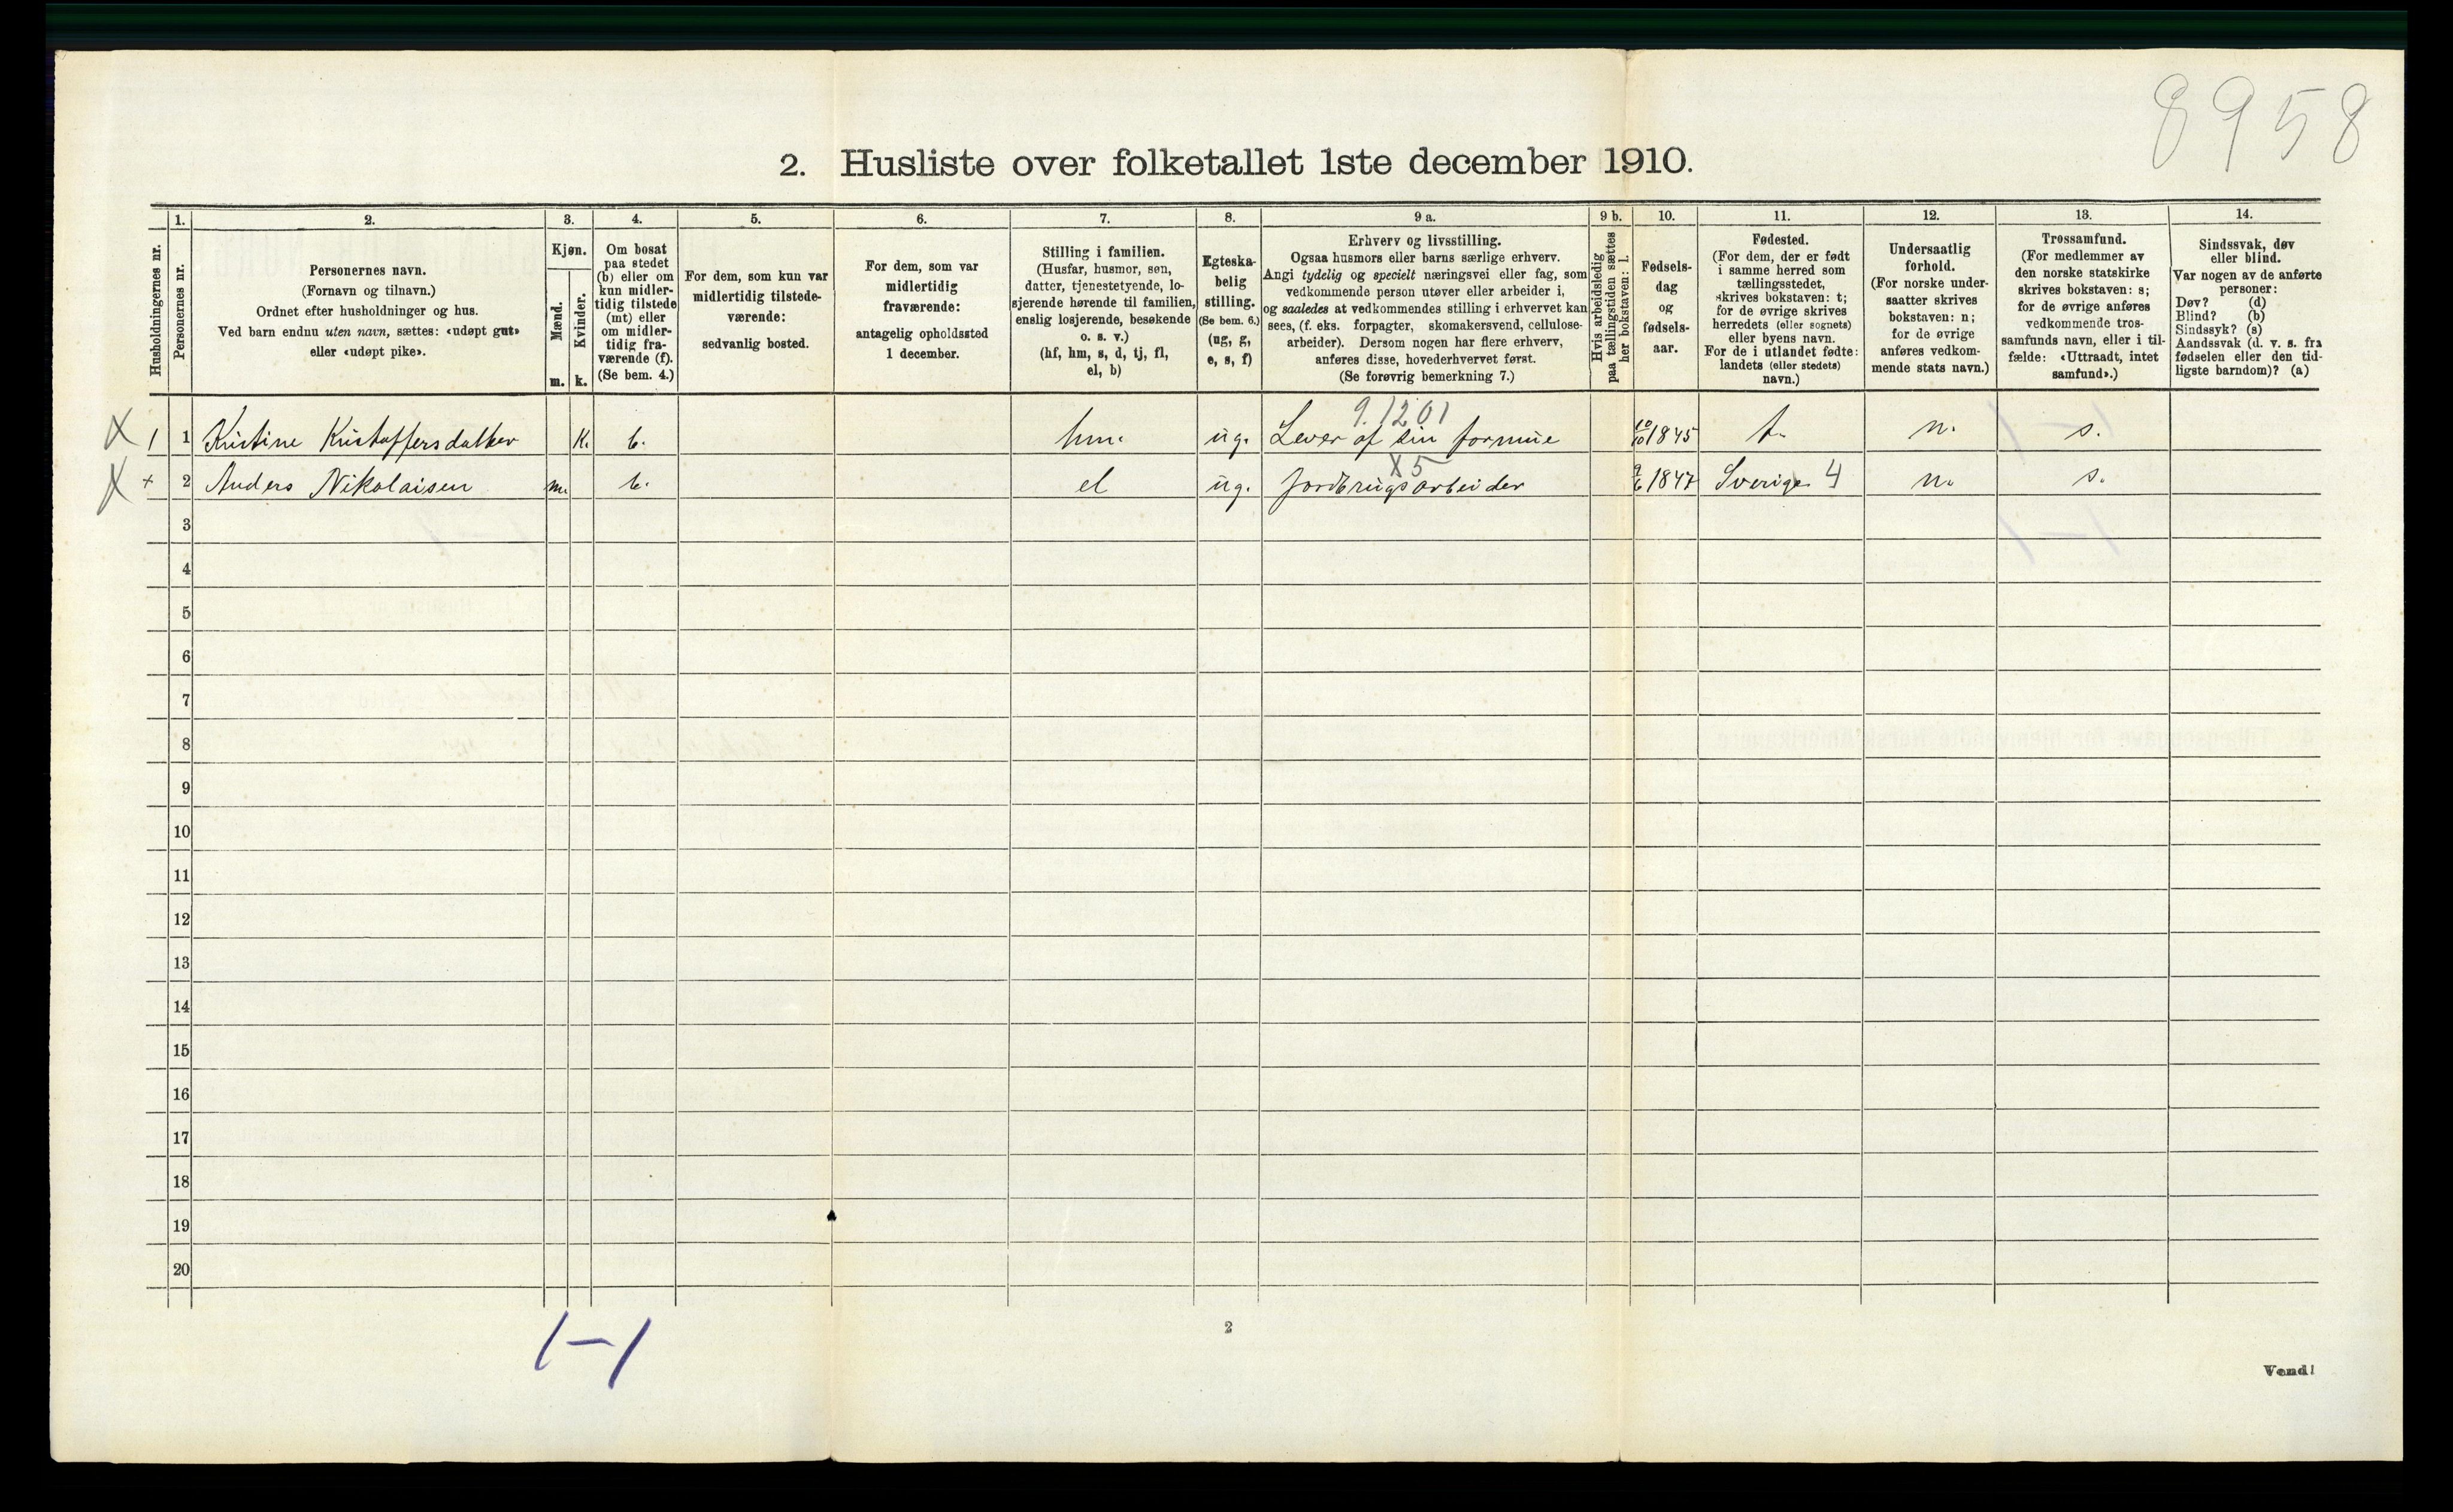 8958
2. Husliste over folketallet 1ste december 1910.
Husholdningernes nr.
1.
Personernes nr.
2.
Personernes navn.
(Fornavn og tilnavn.)
Ordnet efter husholdninger og hus.
Ved barn endnu uten navn, sættes: «udøpt gut»
eller «udøpt pike».
3.
Kjøn.
Mænd.
Kvinder.
m.
k.
4.
Om bosat
paa stedet
(b) eller om
kun midler-
tidig tilstede
(mt) eller
om midler-
tidig fra-
værende (f).
(Se bem. 4.)
5.
For dem, som kun var
midlertidig tilstede-
værende:
sedvanlig bosted.
6.
For dem, som var
midlertidig
fraværende:
antagelig opholdssted
1 december.
7.
Stilling i familien.
(Husfar, husmor, søn,
datter, tjenestetyende, lo-
sjerende hørende til familien,
enslig losjerende, besøkende
o. s. v.)
(hf, hm, s, d, tj, fl,
el, b)
8.
Egteska-
belig
stilling.
(Se bem. 6.)
(ug, g,
e, s, f)
9 a.
Erhverv og livsstilling.
Ogsaa husmors eller barns særlige erhverv.
Angi tydelig og specielt næringsvei eller fag, som
vedkommende person utøver eller arbeider i,
og saaledes at vedkommendes stilling i erhvervet kan
sees, (f. eks. forpagter, skomakersvend, cellulose-
arbeider). Dersom nogen har flere erhverv,
anføres disse, hovederhvervet først.
(Se forøvrig bemerkning 7.)
9 b.
Hvis arbeidsledig
paa tællingstiden sættes
her bokstaven: l.
10.
Fødsels-
dag
og
fødsels-
aar.
11.
Fødested.
(For dem, der er født
i samme herred som
tællingsstedet,
skrives bokstaven: t;
for de øvrige skrives
herredets (eller sognets)
eller byens navn.
For de i utlandet fødte:
landets (eller stedets)
navn.)
12.
Undersaatlig
forhold.
(For norske under-
saatter skrives
bokstaven: n;
for de øvrige
anføres vedkom-
mende stats navn.)
13.
Trossamfund.
(For medlemmer av
den norske statskirke
skrives bokstaven: s;
for de øvrige anføres
vedkommende tros-
samfunds navn, eller i til-
fælde: «Uttraadt, intet
samfund».)
14.
Sindssvak, døv
eller blind.
Var nogen av de anførte
personer:
Døv? (d)
Blind? (b)
Sindssyk? (s)
Aandssvak (d. v. s. fra
fødselen eller den tid-
ligste barndom)? (a)
9.1201
X 1 1 Kristine Kristoffersdatter K. b. hm. ug. Lever af sin formue 10/10 1845 t. n. s.
X5
X + 2 Anders Nikolaisen m. b. el ug. Jordbrugsarbeider 9/6 1847 Sverige 4 n. s.
3
4
5
6
7
8
9
10
11
12
13
14
15
16
17
18
19
20
1–1
2
Vend!